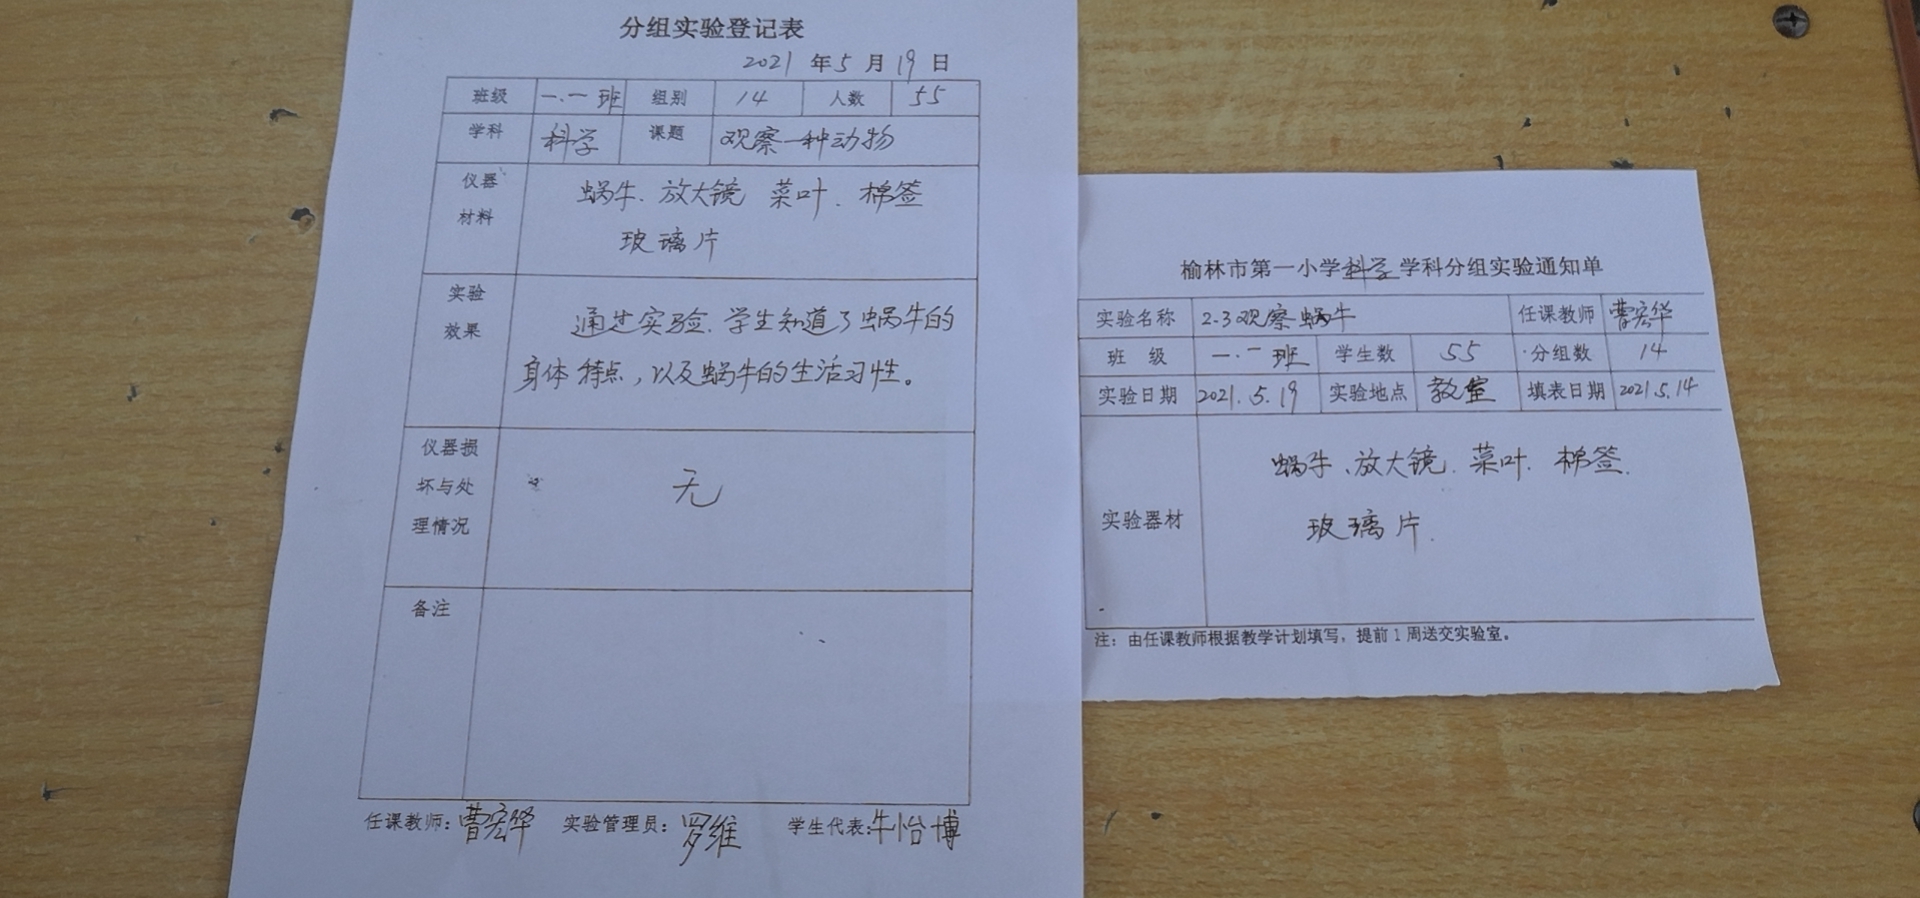 分组实验登记表
2021 年 5 月 19 日
班级 一.一班 组别 14 人数 55
学科 科学 课题 观察一种动物
仪器材料 蜗牛、放大镜 菜叶、棉签
玻璃片
实验效果 通过实验、学生知道了蜗牛的
身体特点，以及蜗牛的生活习性。
仪器损坏与处理情况 无
备注
任课教师：曹宏华 实验管理员：罗维 学生代表：牛怡博
榆林市第一小学科学学科分组实验通知单
实验名称 2.3观察蜗牛 任课教师 曹宏华
班 级 一.一班 学生数 55 分组数 14
实验日期 2021.5.19 实验地点 教室 填表日期 2021.5.14
实验器材 蜗牛、放大镜. 菜叶. 棉签.
玻璃片.
注：由任课教师根据教学计划填写，提前1周送交实验室。